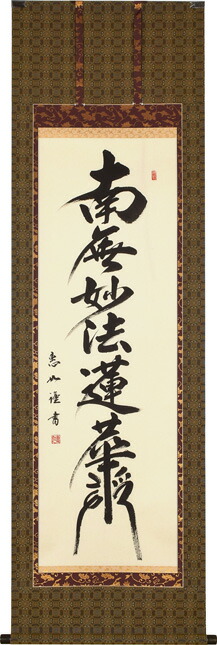 南無妙法蓮華経
恵如謹書